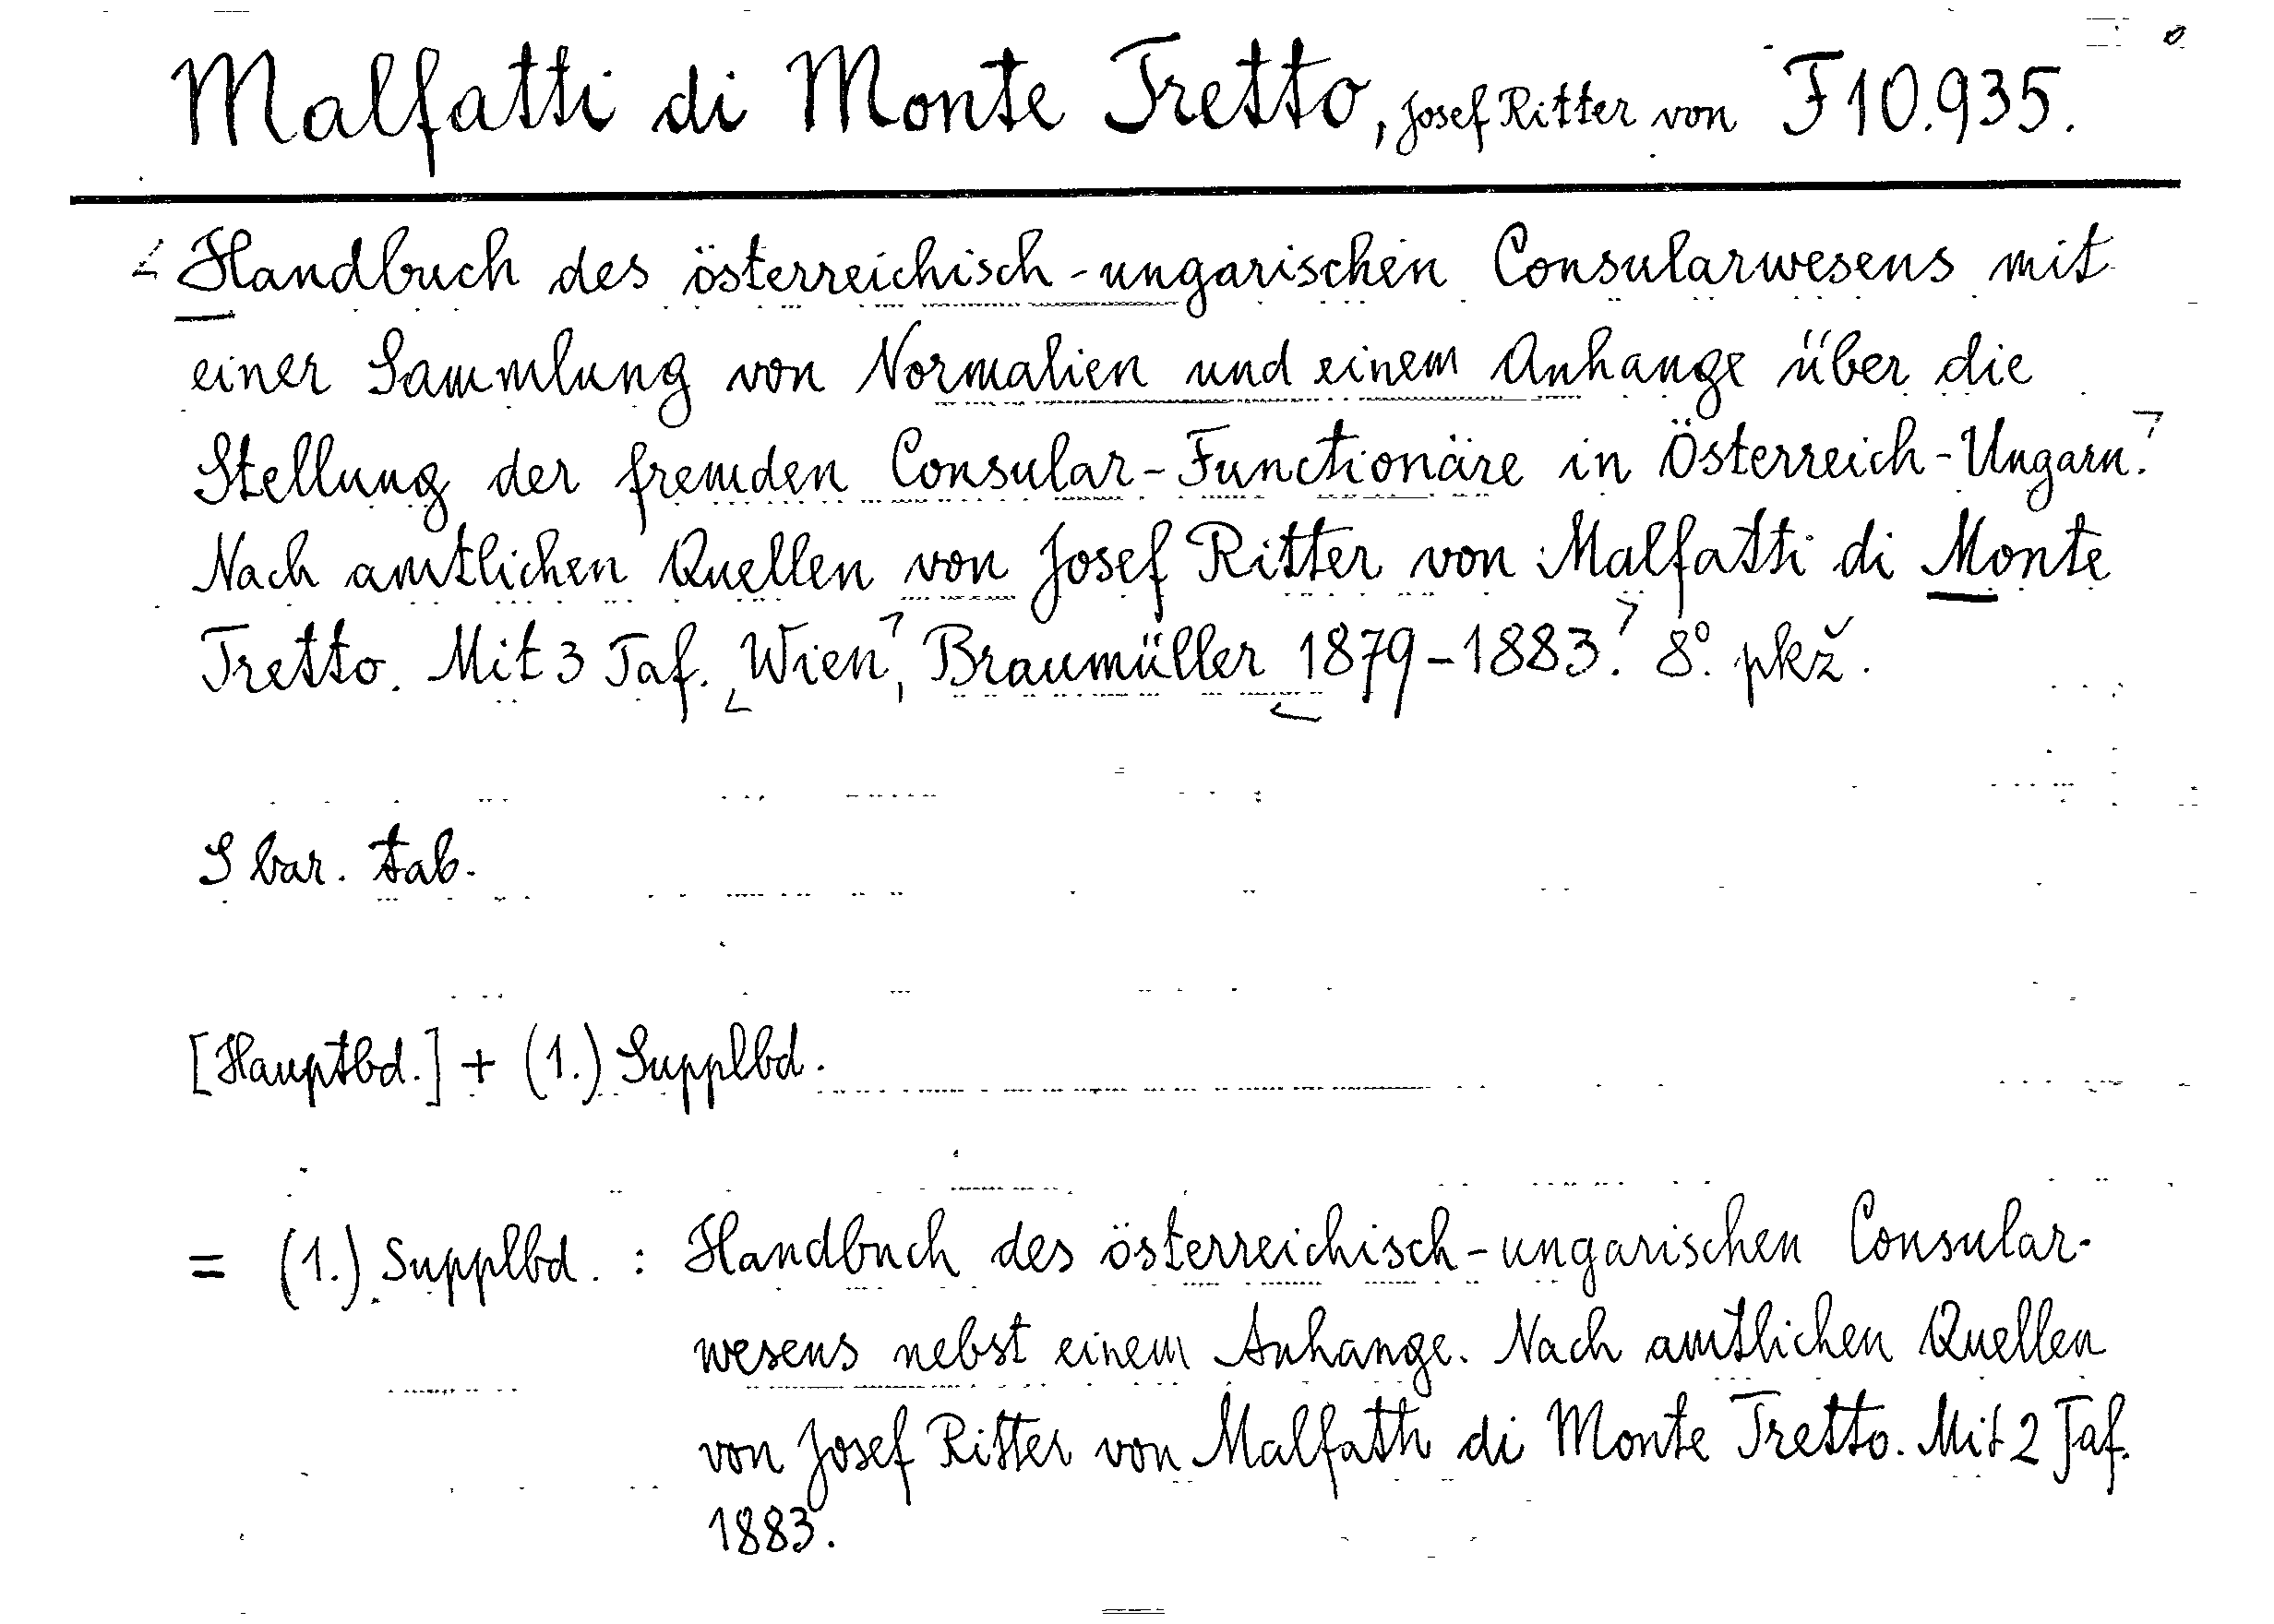 Malfatti di Monte Tretto, Josef Ritter von F 10.935.
Handbuch des österreichisch-ungarischen Consularwesens mit
einer Sammlung von Normalien und einem Anhange über die
Stellung der fremden Consular-Functionäre in Österreich-Ungarn.
Nach amtlichen Quellen von Josef Ritter von Malfatti di Monte
Tretto. Mit 3 Taf. Wien, Braumüller 1879-1883. 8°. pkž.
S bar. tab.
[Hauptbd.] + (1.) Supplbd.
= (1.) Supplbd. : Handbuch des österreichisch-ungarischen Consular-
wesens nebst einem Anhange. Nach amtlichen Quellen
von Josef Ritter von Malfatti di Monte Tretto. Mit 2 Taf.
1883.